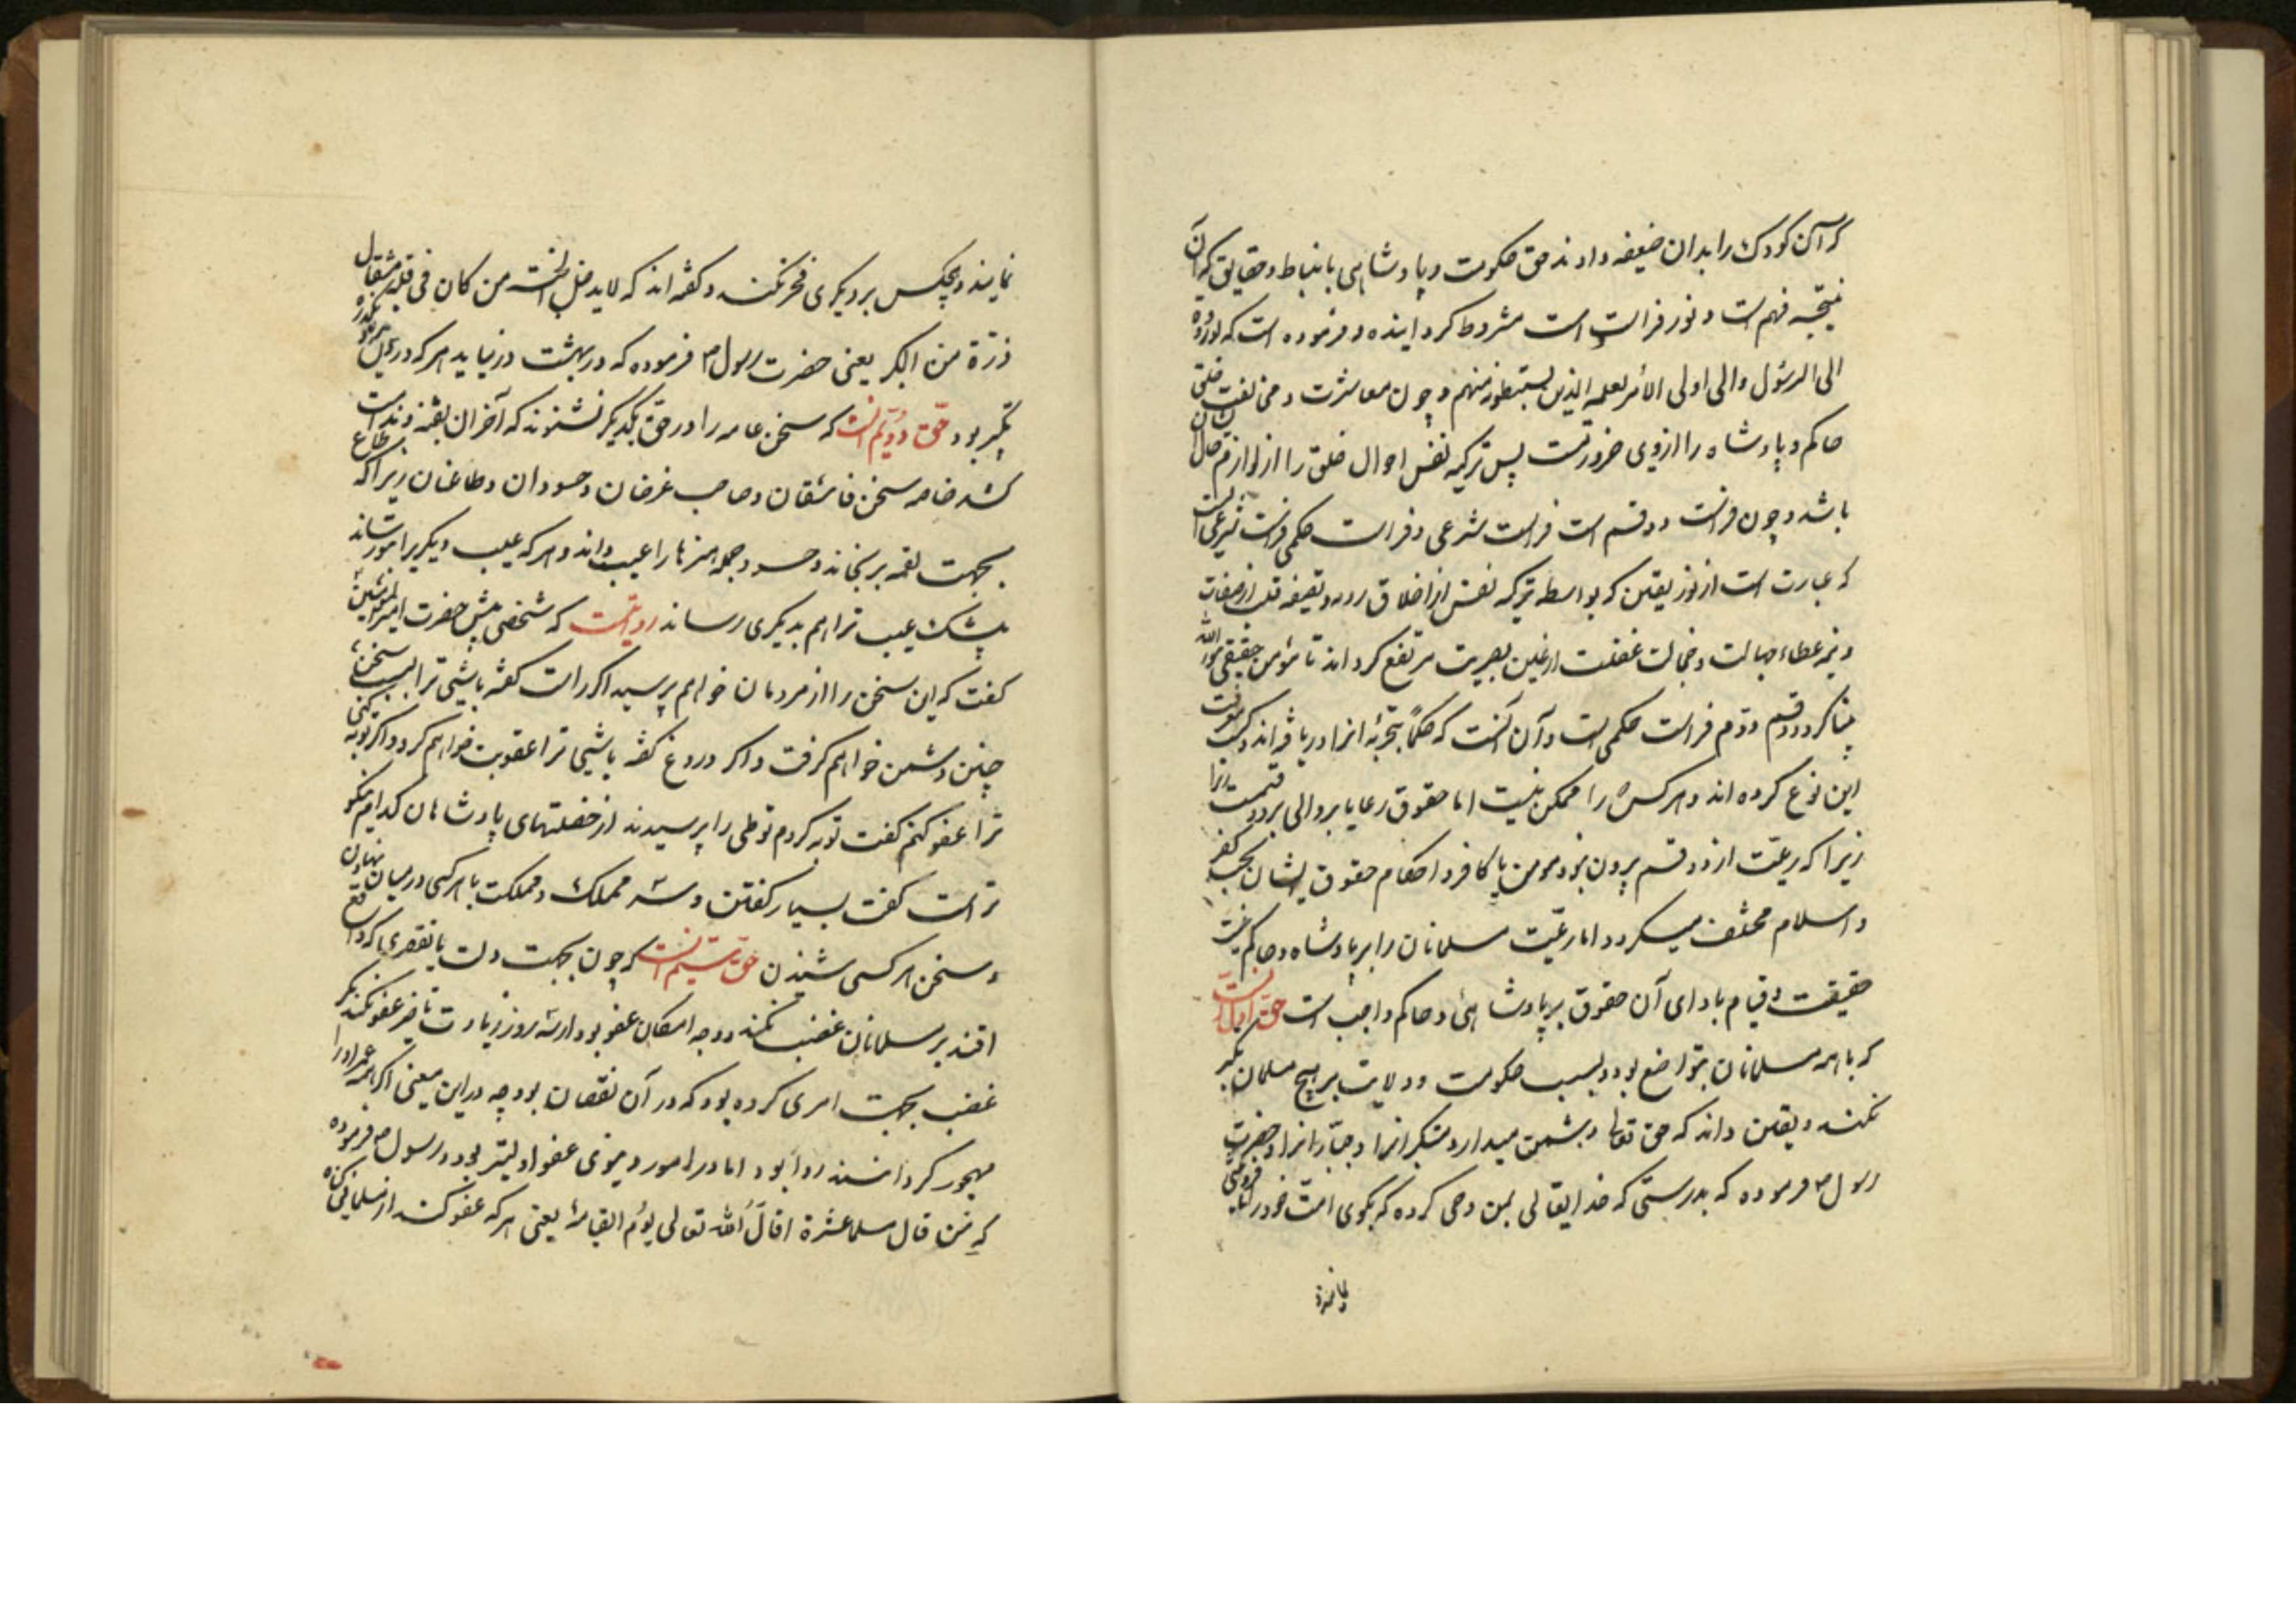 که آن کودک را بدان ضعیفه دادند حق حکومت و پادشاهی باستنباط و حقایق که آن
نتیجه فهم است و نور فراست است مشروط کردانیده و فرموده است که و لو ردوه
الی الرسول والی اولی الأمر لعلمه الذین یستنبطونه منهم و چون معاشرت و مخالفت خلق
حاکم و پادشاه را از وی ضرورتست پس تزکیه نفس احوال خلق را از لوازم حال شان
باشد و چون فراست دو قسم است فراست شرعی و فراست حکمی فراست شرعی است
که عبارت است از نور یقین که بواسطه تزکیه نفس از اخلاق ردیه و تصفیه قلب از صفات
و غطاء جهالت و حجالت غفلت از عین بصیرت مرتفع کرداند تا مؤمن حقیقی بنور الله
بینا کردد و قسم دوم فراست حکمی است و آن آنست که حکما بتجربه آنرا دریافته اند و کسب
این نوع کرده اند و هر کس را ممکن نیست اما حقوق رعایا بر والی بر دو قسمت
زیرا که رعیت از دو قسم بیرون نبود مومن یا کافر و احکام حقوق ایشان بحسب کفر
و اسلام مختلف میکردد اما رعیت مسلمانان را بر پادشاه و حاکم
حقیقت و قیام باداى آن حقوق بر پادشاهی و حاکم واجب است حق اول آنست
که با همه مسلمانان متواضع بود و بسبب حکومت و ولایت بر هیچ مسلمان تکبر
نکند و یقین داند که حق تعالی دشمن میدارد متکبرانرا و جبارانرا و حضرت
رسول م فرموده که بدرستی که خدایتعالی بمن وحی کرده که بکوی امت خود را تا فروتنی
نمایند
نمایند و هیچکس بر دیکری فخر نکند و کفته اند که لا یدخل الجنة من کان فی قلبه مثقال
ذرة من الکبر یعنی حضرت رسول م فرموده که در بهشت در نیاید هر که در دل
تکبر بود حق دویم آنست که سخن عامه را در حق یکدیکر نشنوند که آخر آن بفتنه و ندامت
کشد خاصه سخن فاسقان و صاحب غرضان و حسودان و طاعنان زیرا که طماع
بجهت لقمه برنجاند و حسود جمله هنرها را عیب داند و هر که عیب دیکری را بتو رساند
بیشک عیب ترا هم بدیکری رساند روایتست که شخصی پیش حضرت امیرالمؤمنین
کفت که این سخن را از مردمان خواهم پرسید اکر راست کفته باشی ترا بسبب سخن
چنین دشمن خواهم کرفت و اکر دروغ کفته باشی ترا عقوبت خواهم کرد و اکر توبه کنی
ترا عفو کنم کفت توبه کردم توطی را پرسیدند از خصلتهای پادشاهان کدام نیکو
تر است کفت بسیار کفتن و سر مملکت با هر کسی در میان نهادن
و سخن هر کسی شنیدن حق سیم آنست که چون بجهت دلت یا تقصیری که واقع
افتد بر مسلمانان غضب نکند و وجه امکان عفو بود از سه روز زیادت تاخیر عفو نکند مکر
غضب بجهت امری کرده بود که در آن نقصان بود چه در این معنی اکر همه عمر او را
مهجور کردانند روا بود اما در امور دنیوی عفو اولیتر بود و رسول م فرموده
که من قال مسلما عثرة اقال الله تعالی یوم القیامة یعنی هر که عفو کند از مسلمانی کناه